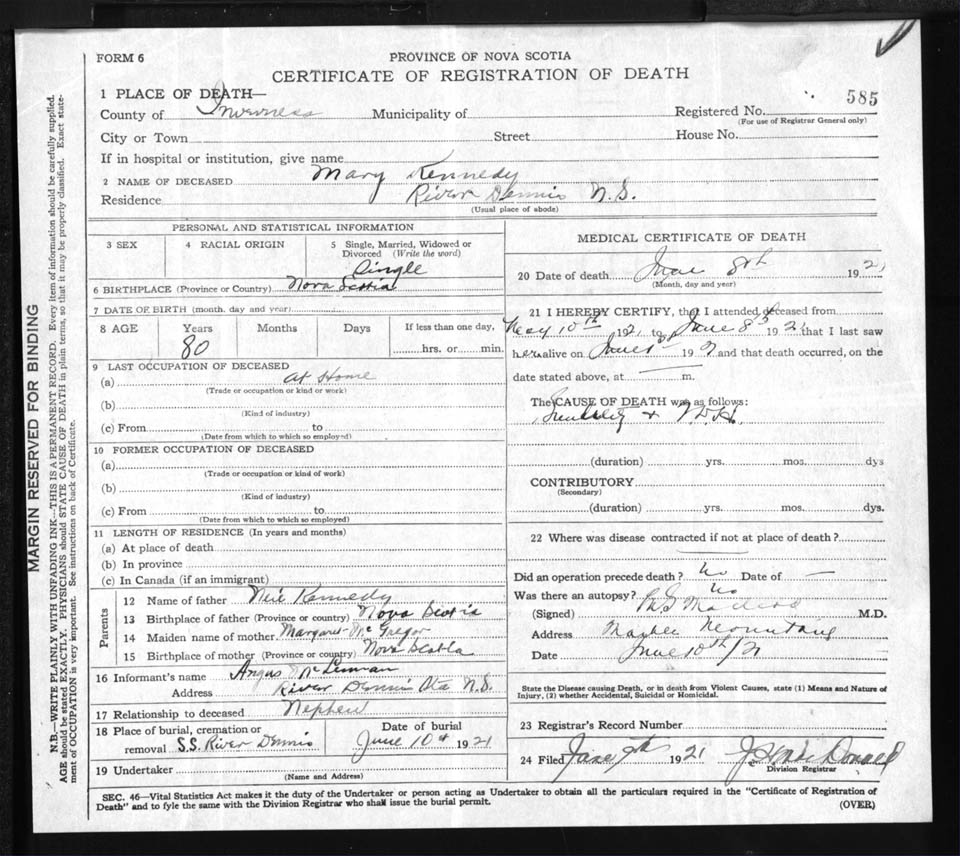 FORM 6
PROVINCE OF NOVA SCOTIA
CERTIFICATE OF REGISTRATION OF DEATH
585
1 PLACE OF DEATH—
County of Inverness Municipality of Registered No.
(For use of Registrar General only)
City or Town Street House No.
If in hospital or institution, give name
2 NAME OF DECEASED Mary Kennedy
Residence River Dennis N.S.
(Usual place of abode)
PERSONAL AND STATISTICAL INFORMATION
3 SEX 4 RACIAL ORIGIN 5 Single, Married, Widowed or
Divorced (Write the word)
Single
6 BIRTHPLACE (Province or Country) Nova Scotia
7 DATE OF BIRTH (month, day and year)
8 AGE Years Months Days If less than one day,
80 hrs. or min.
9 LAST OCCUPATION OF DECEASED
(a) at Home
(Trade or occupation or kind or work)
(b)
(Kind of industry)
(c) From to
(Date from which to which so employed)
10 FORMER OCCUPATION OF DECEASED
(a)
(Trade or occupation or kind of work)
(b)
(Kind of industry)
(c) From to
(Date from which to which so employed)
11 LENGTH OF RESIDENCE (In years and months)
(a) At place of death
(b) In province
(c) In Canada (if an immigrant)
Parents
12 Name of father Neil Kennedy
13 Birthplace of father (Province or country) Nova Scotia
14 Maiden name of mother Margaret McGregor
15 Birthplace of mother (Province or country) Nova Scotia
16 Informant's name Angus McLennan
Address River Dennis Sta N.S.
17 Relationship to deceased Nephew
18 Place of burial, cremation or Date of burial
removal S.S. River Dennis June 10th 1921
19 Undertaker
(Name and Address)
MEDICAL CERTIFICATE OF DEATH
20 Date of death June 8th 1921
(Month, day and year)
21 I HEREBY CERTIFY, that I attended deceased from
May 10th 1921 to June 8th 1921 that I last saw
her alive on June 192 and that death occurred, on the
date stated above, at — m.
The CAUSE OF DEATH was as follows:
(duration) yrs. mos. dys
CONTRIBUTORY
(Secondary)
(duration) yrs. mos. dys.
22 Where was disease contracted if not at place of death?
Did an operation precede death? No Date of —
Was there an autopsy? No
(Signed) MacLeod M.D.
Address Mountain
Date June 10th/21
State the Disease causing Death, or in death from Violent Causes, state (1) Means and Nature of
Injury, (2) whether Accidental, Suicidal or Homicidal.
23 Registrar's Record Number
24 Filed June 9th 1921 McDonald
Division Registrar
SEC. 46—Vital Statistics Act makes it the duty of the Undertaker or person acting as Undertaker to obtain all the particulars required in the "Certificate of Registration of
Death" and to fyle the same with the Division Registrar who shall issue the burial permit.
(OVER)
MARGIN RESERVED FOR BINDING
N.B.—WRITE PLAINLY WITH UNFADING INK—THIS IS A PERMANENT RECORD. Every item of information should be carefully supplied.
AGE should be stated EXACTLY. PHYSICIANS should STATE CAUSE OF DEATH in plain terms, so that it may be properly classified. Exact state-
ment of OCCUPATION is very important. See instructions on back of Certificate.